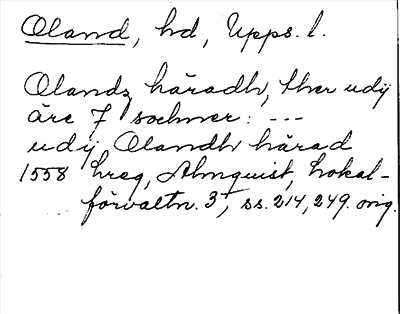 Oland, hd, Upps. l.
Olandz häradh, ther udij
äre 7 sochner: ---
udij Olandh härad
1558 hreg, Almquist, Lokal-
förvaltn. 3, ss. 214, 249. orig.